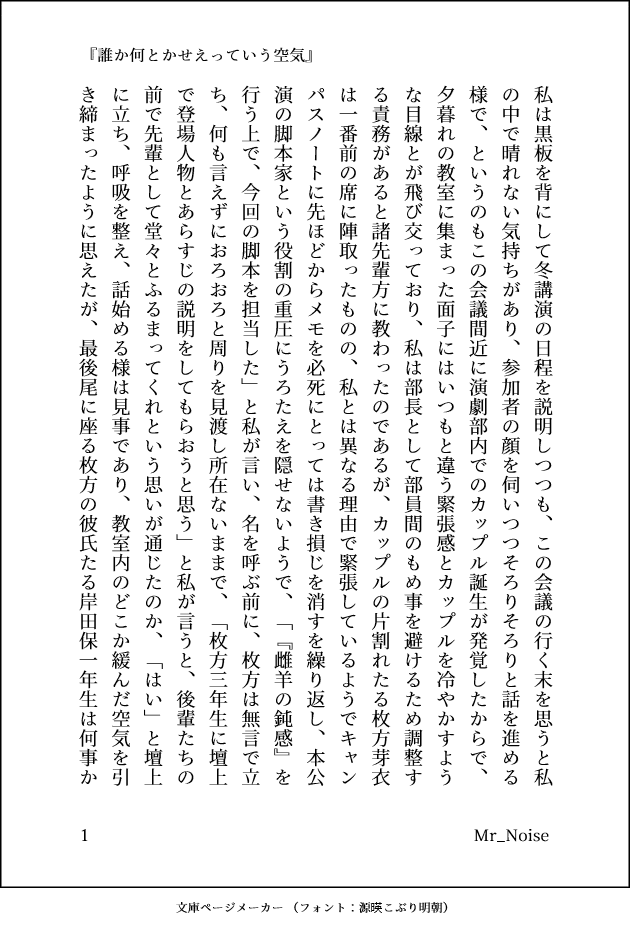 『誰か何とかせえっていう空気』
私は黒板を背にして冬講演の日程を説明しつつも、この会議の行く末を思うと私
の中で晴れない気持ちがあり、参加者の顔を伺いつつそろりそろりと話を進める
様で、というのもこの会議間近に演劇部内でのカップル誕生が発覚したからで、
夕暮れの教室に集まった面子にはいつもと違う緊張感とカップルを冷やかすよう
な目線とが飛び交っており、私は部長として部員間のもめ事を避けるため調整す
る責務があると諸先輩方に教わったのであるが、カップルの片割れたる枚方芽衣
は一番前の席に陣取ったものの、私とは異なる理由で緊張しているようでキャン
パスノートに先ほどからメモを必死にとっては書き損じを消すを繰り返し、本公
演の脚本家という役割の重圧にうろたえを隠せないようで、「『雌羊の鈍感』を
行う上で、今回の脚本を担当した」と私が言い、名を呼ぶ前に、枚方は無言で立
ち、何も言えずにおろおろと周りを見渡し所在ないままで、「枚方三年生に壇上
で登場人物とあらすじの説明をしてもらおうと思う」と私が言うと、後輩たちの
前で先輩として堂々とふるまってくれという思いが通じたのか、「はい」と壇上
に立ち、呼吸を整え、話始める様は見事であり、教室内のどこか緩んだ空気を引
き締まったように思えたが、最後尾に座る枚方の彼氏たる岸田保一年生は何事か
1
Mr_Noise
文庫ページメーカー（フォント：源暎こぶり明朝）